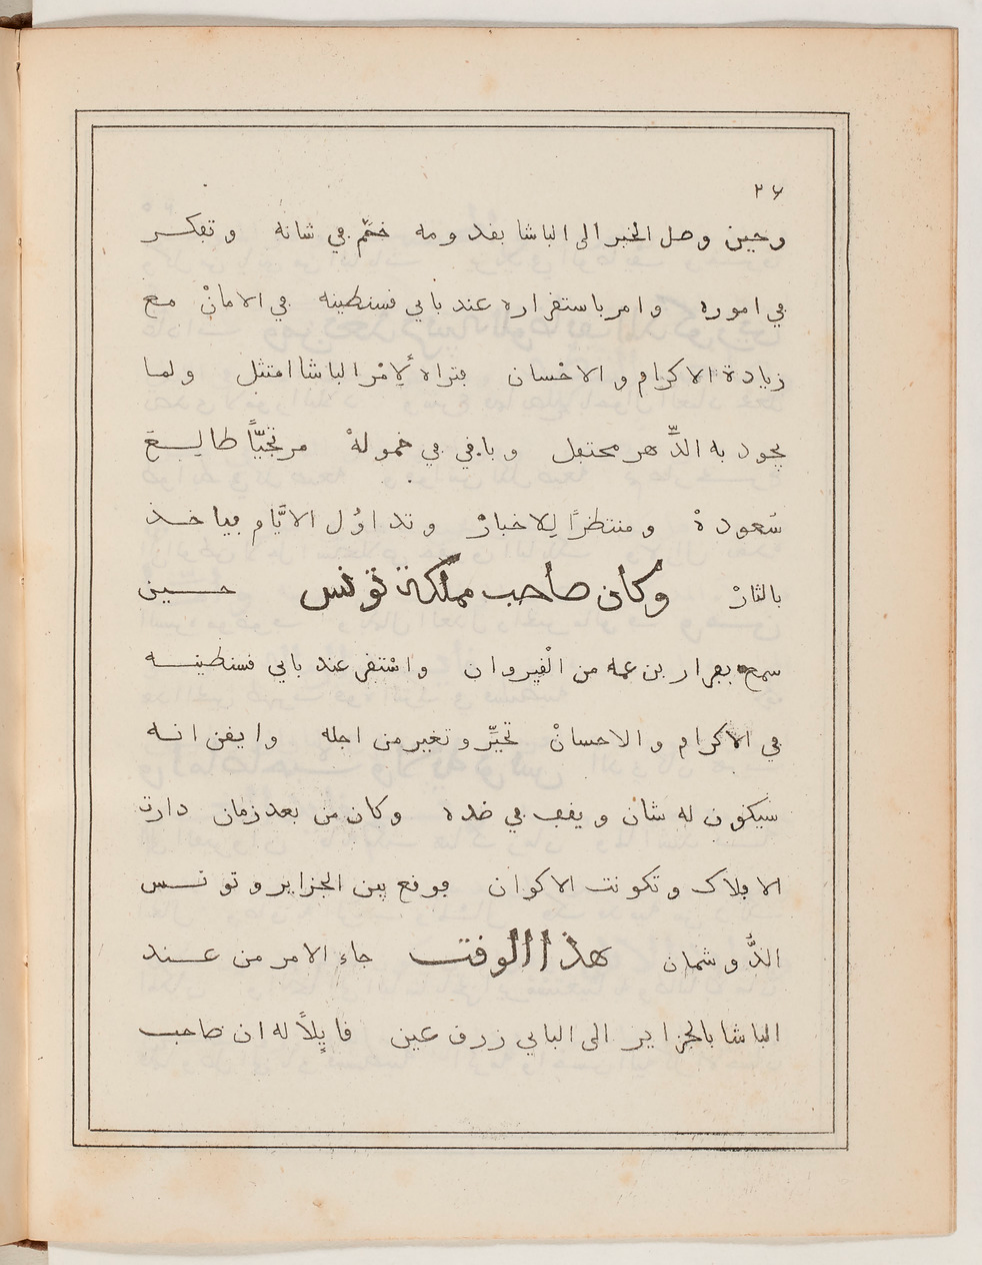 ٢٦
وحين وصل الخبر الى الباشا بقدومه خمّم في شانه وتفكر
في اموره وامر باستقراره عند باي قسنطينه في الامانْ مع
زيادة الاكرام والاحْسان فتراه لِأمْر الباشا امتثل ولما
يجود به الدّهر محتفل وباقي في خمولهْ مرتجيّاً طالع
سَعودهْ ومنتظرًا لِلاخبارْ وتداوُل الايَّام فياخذ
بالثارْ وكان صاحب مملكة تونس حسين
سمع بفرار بن عمه من الْقيروان واسْتقر عند باي قسنطينه
في الاكرام والاحسانْ تحيّر وتغير من اجله وايقن انه
سيكون له شان ويقف في ضده وكان من بعد زمان دارت
الافلاك وتكونت الاكوان فوقع بين الجزاير وتونس
الدُّوشمان هذا الوقت جاء الامر من عند
الباشا بالجزاير الى الباي زرق عين قايلاً له ان صاحب